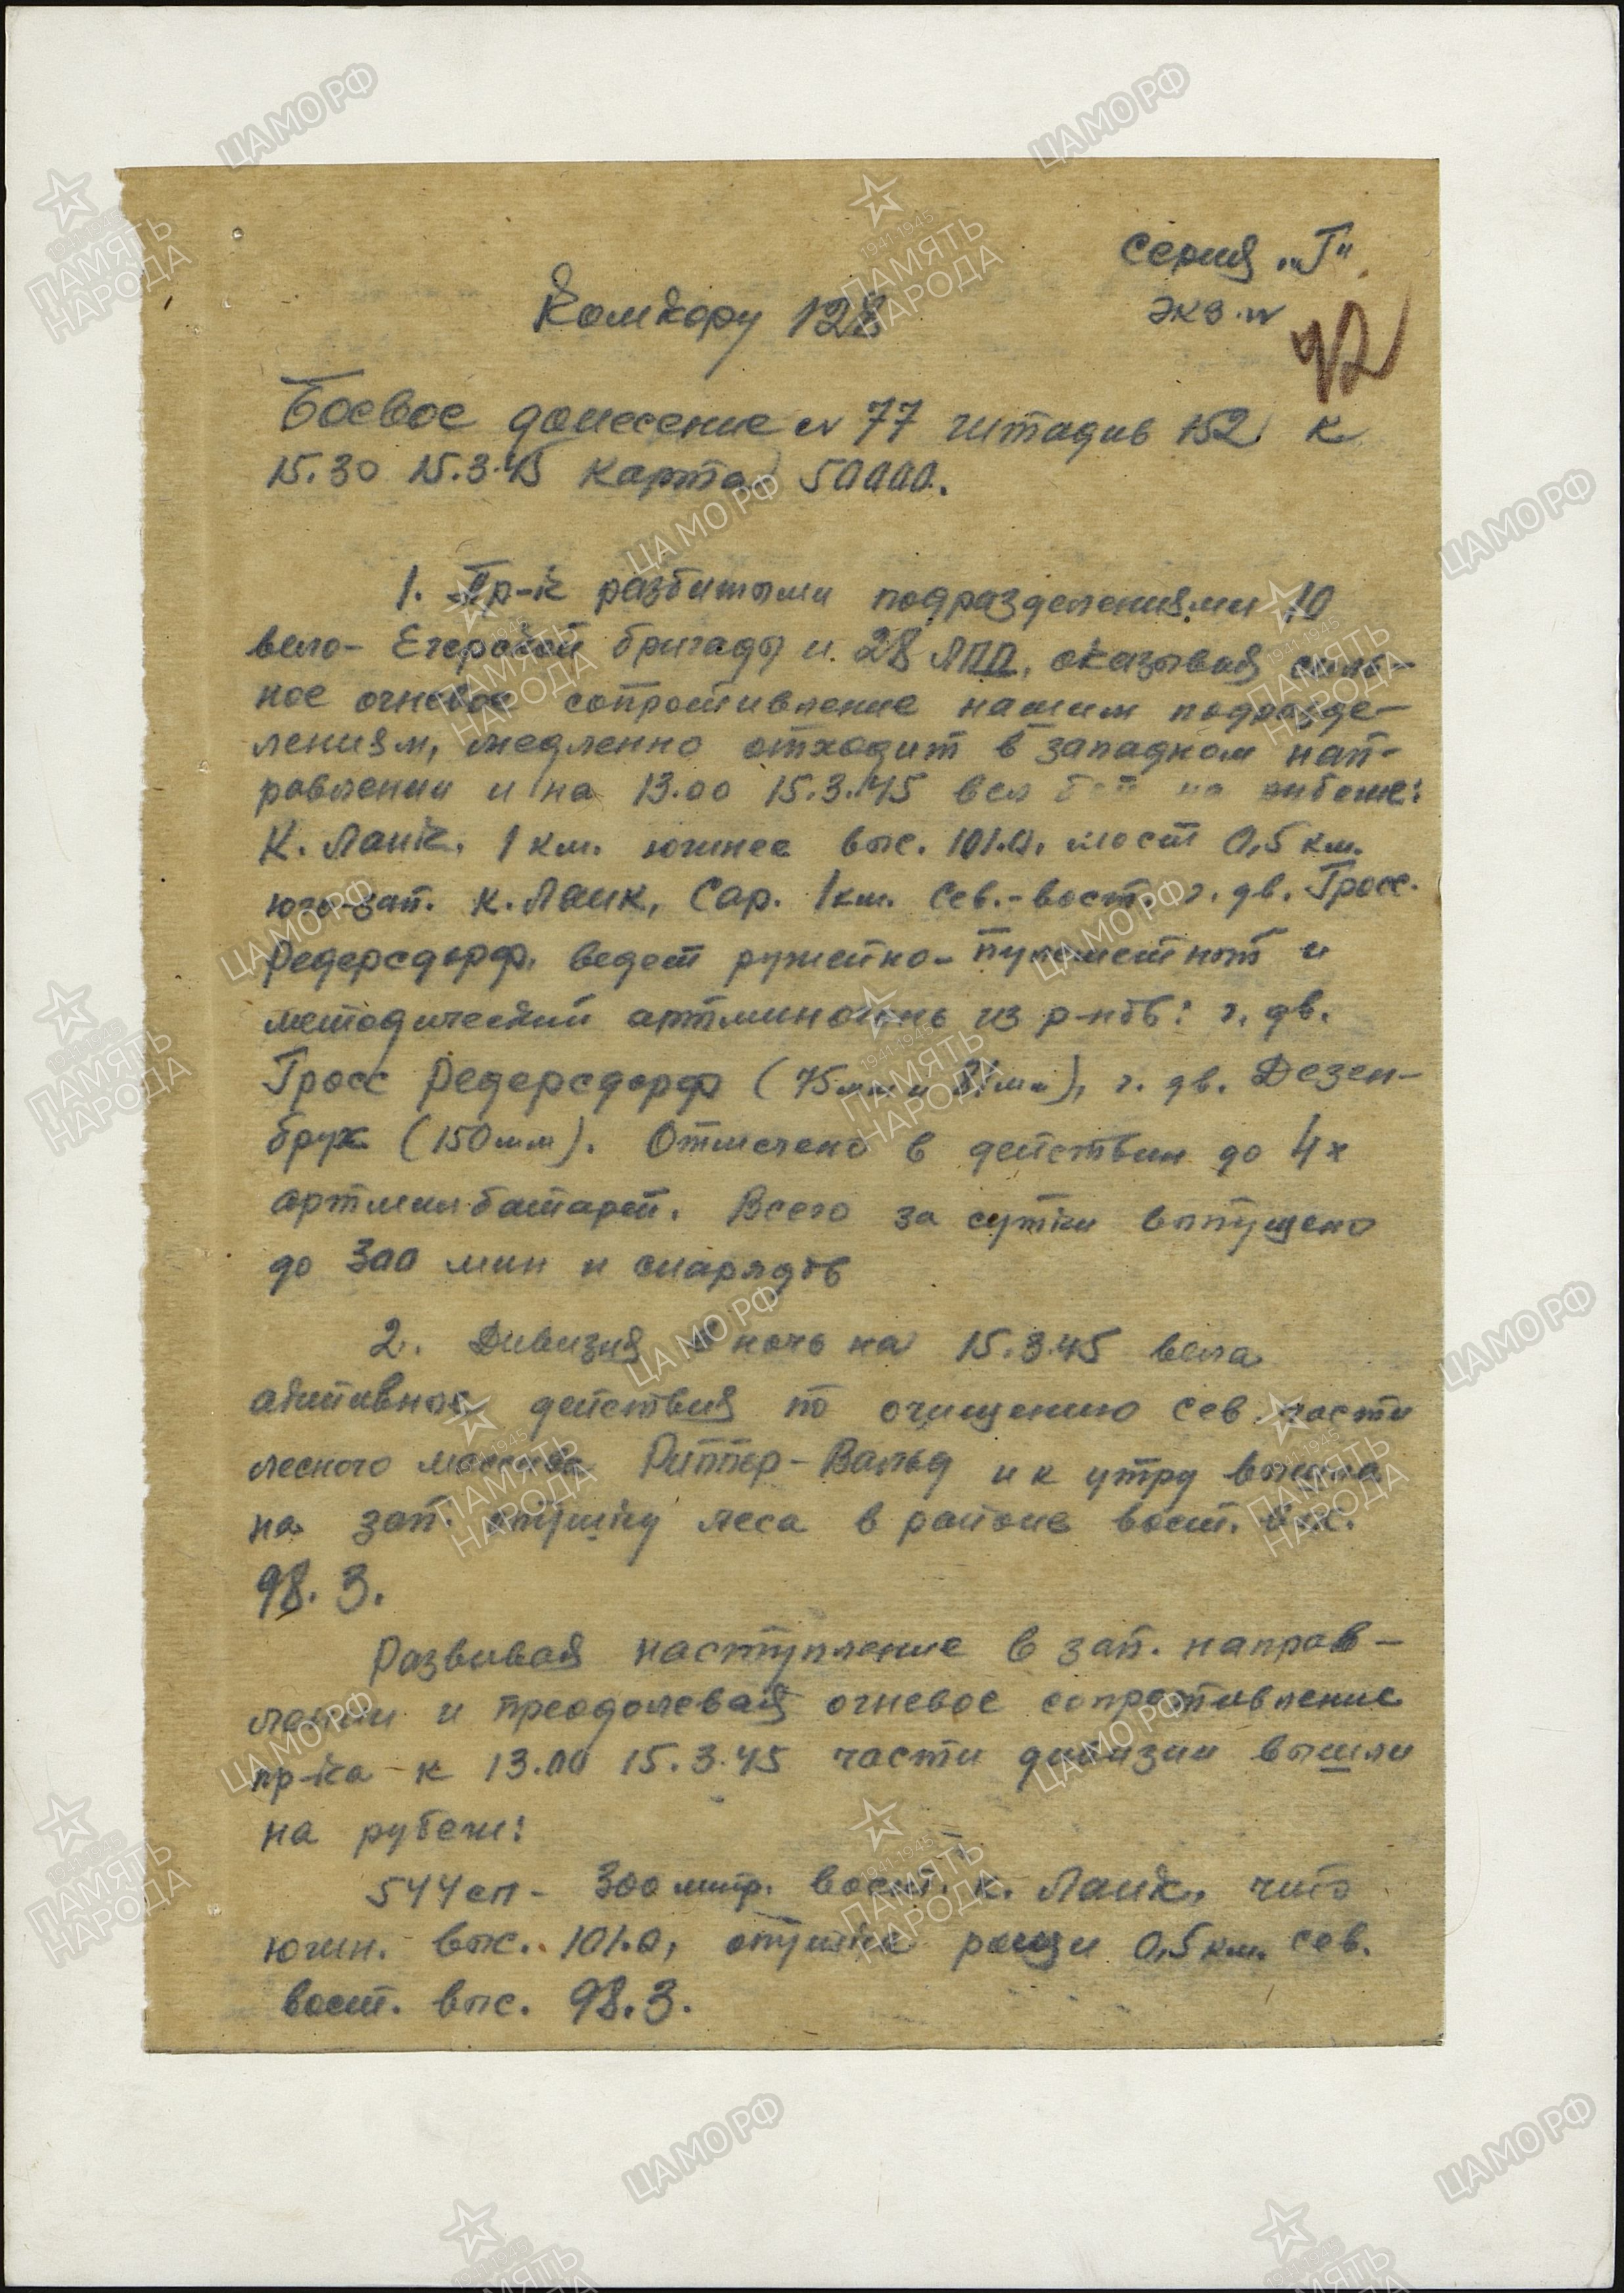 Серия "Г"
Комкору 128
экз. №
92
Боевое донесение № 77 штадив 152 к
15.30 15.3.45 карта 50000.
1. Пр-к разбитыми подразделениями 10
вело-Егерской бригады и 28 ЛПП, оказывая силь-
ное огневое сопротивление нашим подразде-
лениям, медленно отходит в западном нап-
равлении и на 13.00 15.3.45 вел бой на рубеже:
К. Ланк, 1 км. южнее выс. 101.0, мост 0,5 км.
юго-зап. к. Ланк, Сар. 1 км. Сев.-вост. г. дв. Гросс.
Редерсдорф, ведет ружейно-пулеметный и
методический артминогонь из р-нов: г. дв.
Гросс Редерсдорф (75мм и 81мм), г. дв. Дезен-
брух (150мм). Отмечено в действии до 4х
артминбатарей. Всего за сутки выпущено
до 300 мин и снарядов
2. Дивизия в ночь на 15.3.45 вела
активные действия по очищению сев. части
лесного массива Риппер-Вальд и к утру вышла
на зап. опушку леса в районе вост. выс.
98.3.
Развивая наступление в зап. направ-
лении и преодолевая огневое сопротивление
пр-ка к 13.00 15.3.45 части дивизии вышли
на рубеж:
544 сп - 300 мтр. вост. к. Ланк,
южн. выс. 101.0, опушка рощи 0,5 км. сев.
вост. выс. 98.3.
ЦАМО РФ
ПАМЯТЬ НАРОДА
1941-1945